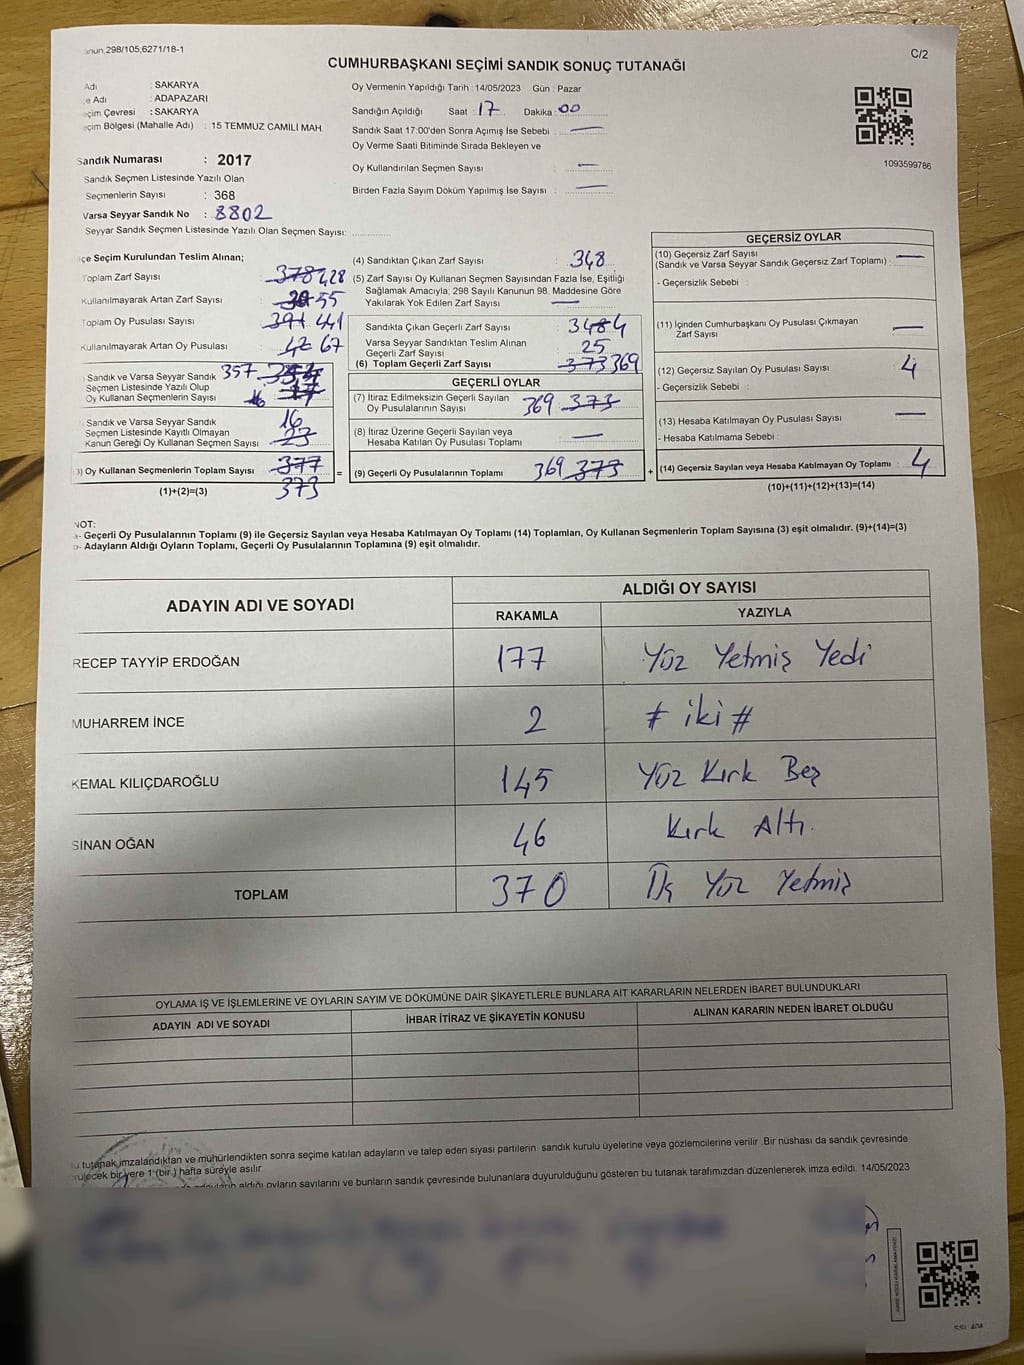 anun;298/105;6271/18-1
C/2
CUMHURBAŞKANI SEÇİMİ SANDIK SONUÇ TUTANAĞI
Adı : SAKARYA
e Adı : ADAPAZARI
eçim Çevresi : SAKARYA
eçim Bölgesi (Mahalle Adı) : 15 TEMMUZ CAMİLİ MAH.
Sandık Numarası : 2017
Sandık Seçmen Listesinde Yazılı Olan
Seçmenlerin Sayısı : 368
Varsa Seyyar Sandık No : 8802
Seyyar Sandık Seçmen Listesinde Yazılı Olan Seçmen Sayısı:
Oy Vermenin Yapıldığı Tarih : 14/05/2023 Gün : Pazar
Sandığın Açıldığı Saat : 17 Dakika : 00
Sandık Saat 17:00'den Sonra Açımış İse Sebebi : —
Oy Verme Saati Bitiminde Sırada Bekleyen ve
Oy Kullandırılan Seçmen Sayısı : —
Birden Fazla Sayım Döküm Yapılmış İse Sayısı : —
1093599786
çe Seçim Kurulundan Teslim Alınan;
Toplam Zarf Sayısı : 378 428
Kullanılmayarak Artan Zarf Sayısı : 55
Toplam Oy Pusulası Sayısı : 391 441
Kullanılmayarak Artan Oy Pusulası : 42 67
Sandık ve Varsa Seyyar Sandık 357
Seçmen Listesinde Yazılı Olup
Oy Kullanan Seçmenlerin Sayısı
Sandık ve Varsa Seyyar Sandık 16
Seçmen Listesinde Kayıtlı Olmayan
Kanun Gereği Oy Kullanan Seçmen Sayısı : 23
3) Oy Kullanan Seçmenlerin Toplam Sayısı : 377
(1)+(2)=(3) 373
(4) Sandıktan Çıkan Zarf Sayısı : 348
(5) Zarf Sayısı Oy Kullanan Seçmen Sayısından Fazla İse, Eşitliği
Sağlamak Amacıyla; 298 Sayılı Kanunun 98. Maddesine Göre
Yakılarak Yok Edilen Zarf Sayısı : —
Sandıkta Çıkan Geçerli Zarf Sayısı : 3484
Varsa Seyyar Sandıktan Teslim Alınan
Geçerli Zarf Sayısı : 25
(6) Toplam Geçerli Zarf Sayısı : 373 369
GEÇERLİ OYLAR
(7) İtiraz Edilmeksizin Geçerli Sayılan
Oy Pusulalarının Sayısı : 369 373
(8) İtiraz Üzerine Geçerli Sayılan veya
Hesaba Katılan Oy Pusulası Toplamı : —
= (9) Geçerli Oy Pusulalarının Toplamı : 369 373
GEÇERSİZ OYLAR
(10) Geçersiz Zarf Sayısı
(Sandık ve Varsa Seyyar Sandık Geçersiz Zarf Toplamı) : —
- Geçersizlik Sebebi :
(11) İçinden Cumhurbaşkanı Oy Pusulası Çıkmayan
Zarf Sayısı : —
(12) Geçersiz Sayılan Oy Pusulası Sayısı : 4
- Geçersizlik Sebebi :
(13) Hesaba Katılmayan Oy Pusulası Sayısı : —
- Hesaba Katılmama Sebebi :
+ (14) Geçersiz Sayılan veya Hesaba Katılmayan Oy Toplamı : 4
(10)+(11)+(12)+(13)=(14)
NOT:
a- Geçerli Oy Pusulalarının Toplamı (9) ile Geçersiz Sayılan veya Hesaba Katılmayan Oy Toplamı (14) Toplamları, Oy Kullanan Seçmenlerin Toplam Sayısına (3) eşit olmalıdır. (9)+(14)=(3)
b- Adayların Aldığı Oyların Toplamı, Geçerli Oy Pusulalarının Toplamına (9) eşit olmalıdır.
ADAYIN ADI VE SOYADI
ALDIĞI OY SAYISI
RAKAMLA YAZIYLA
RECEP TAYYİP ERDOĞAN 177 Yüz Yetmiş Yedi
MUHARREM İNCE 2 # iki #
KEMAL KILIÇDAROĞLU 145 Yüz Kırk Beş
SİNAN OĞAN 46 Kırk Altı.
TOPLAM 370 Üç Yüz Yetmiş
OYLAMA İŞ VE İŞLEMLERİNE VE OYLARIN SAYIM VE DÖKÜMÜNE DAİR ŞİKAYETLERLE BUNLARA AİT KARARLARIN NELERDEN İBARET BULUNDUKLARI
ADAYIN ADI VE SOYADI İHBAR İTİRAZ VE ŞİKAYETİN KONUSU ALINAN KARARIN NEDEN İBARET OLDUĞU
u tutanak imzalandıktan ve mühürlendikten sonra seçime katılan adayların ve talep eden siyasi partilerin sandık kurulu üyelerine veya gözlemcilerine verilir .Bir nüshası da sandık çevresinde
rülecek bir yere 1 (bir ) hafta süreyle asılır.
aldığı oyların sayılarını ve bunların sandık çevresinde bulunanlara duyurulduğunu gösteren bu tutanak tarafımızdan düzenlenerek imza edildi. 14/05/2023